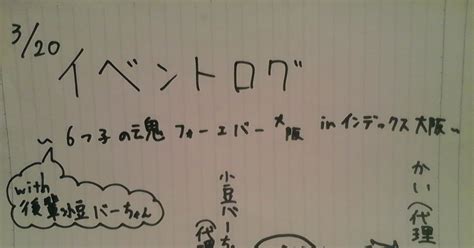 3/20
イベントログ
～6つ子の魂フォーエバー大阪 inインデックス大阪～
with
後輩小豆バーちゃん
小豆バーちゃん(代理
かい(代理